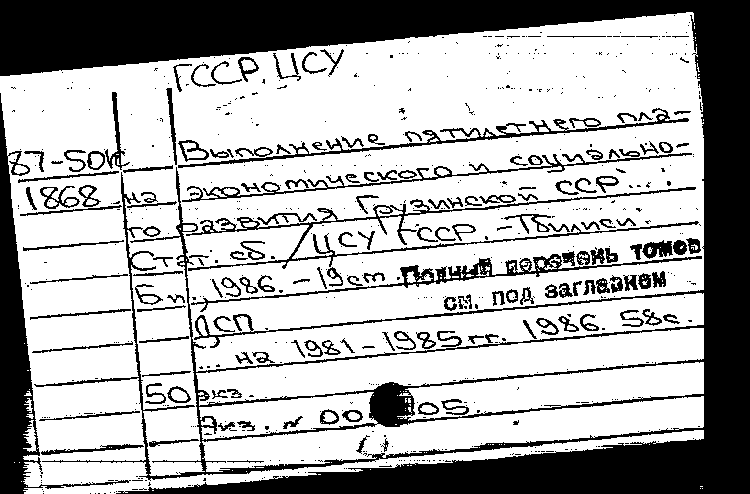 ГССР. ЦСУ
87-50к Выполнение пятилетнего пла-
1868 на экономического и социально-
го развития Грузинской ССР... :
Стат. сб. / ЦСУ ГССР. - Тбилиси:
Б.и., 1986. - 19см. Полный перечень томов
см. под заглавием
ДСП.
... на 1981-1985 гг. 1986. 58с.
50 экз.
Экз. № 00 05.